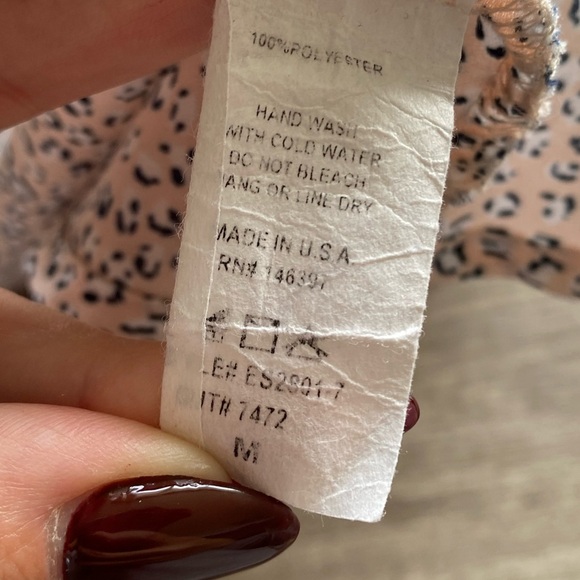 100%POLYESTER
HAND WASH
WITH COLD WATER
DO NOT BLEACH
ANG OR LINE DRY
MADE IN U.S.A.
RN# 146397
LE# ES2801-7
IT# 7472
M